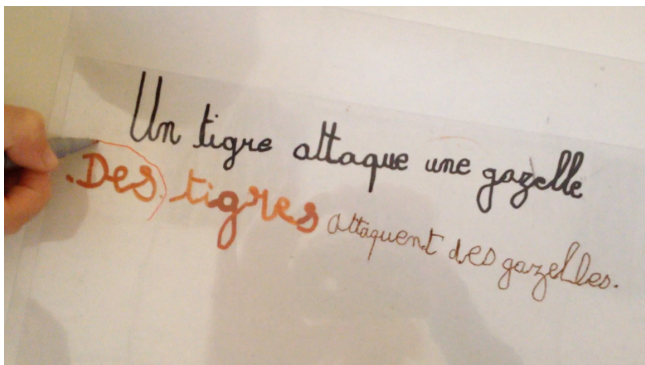 Un tigre attaque une gazelle
Des tigres attaquent des gazelles.